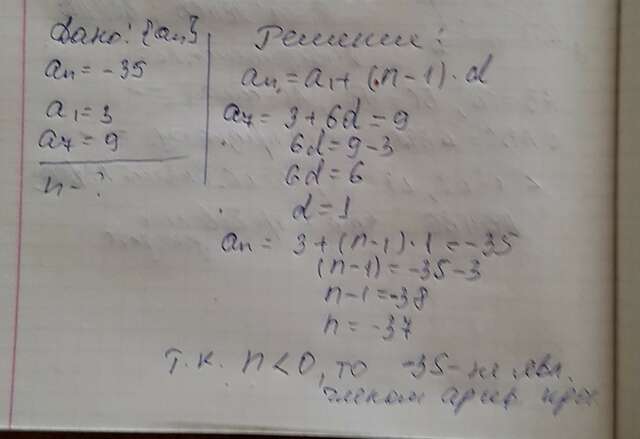 Дано: {an}
an = -35
a1 = 3
a7 = 9
n - ?
Решение:
an = a1 + (n-1)·d
a7 = 3 + 6d = 9
6d = 9 - 3
6d = 6
d = 1
an = 3 + (n-1)·1 = -35
(n-1) = -35-3
n-1 = -38
n = -37
т.к. n < 0, то -35 - не явл.
членом ариф. прог